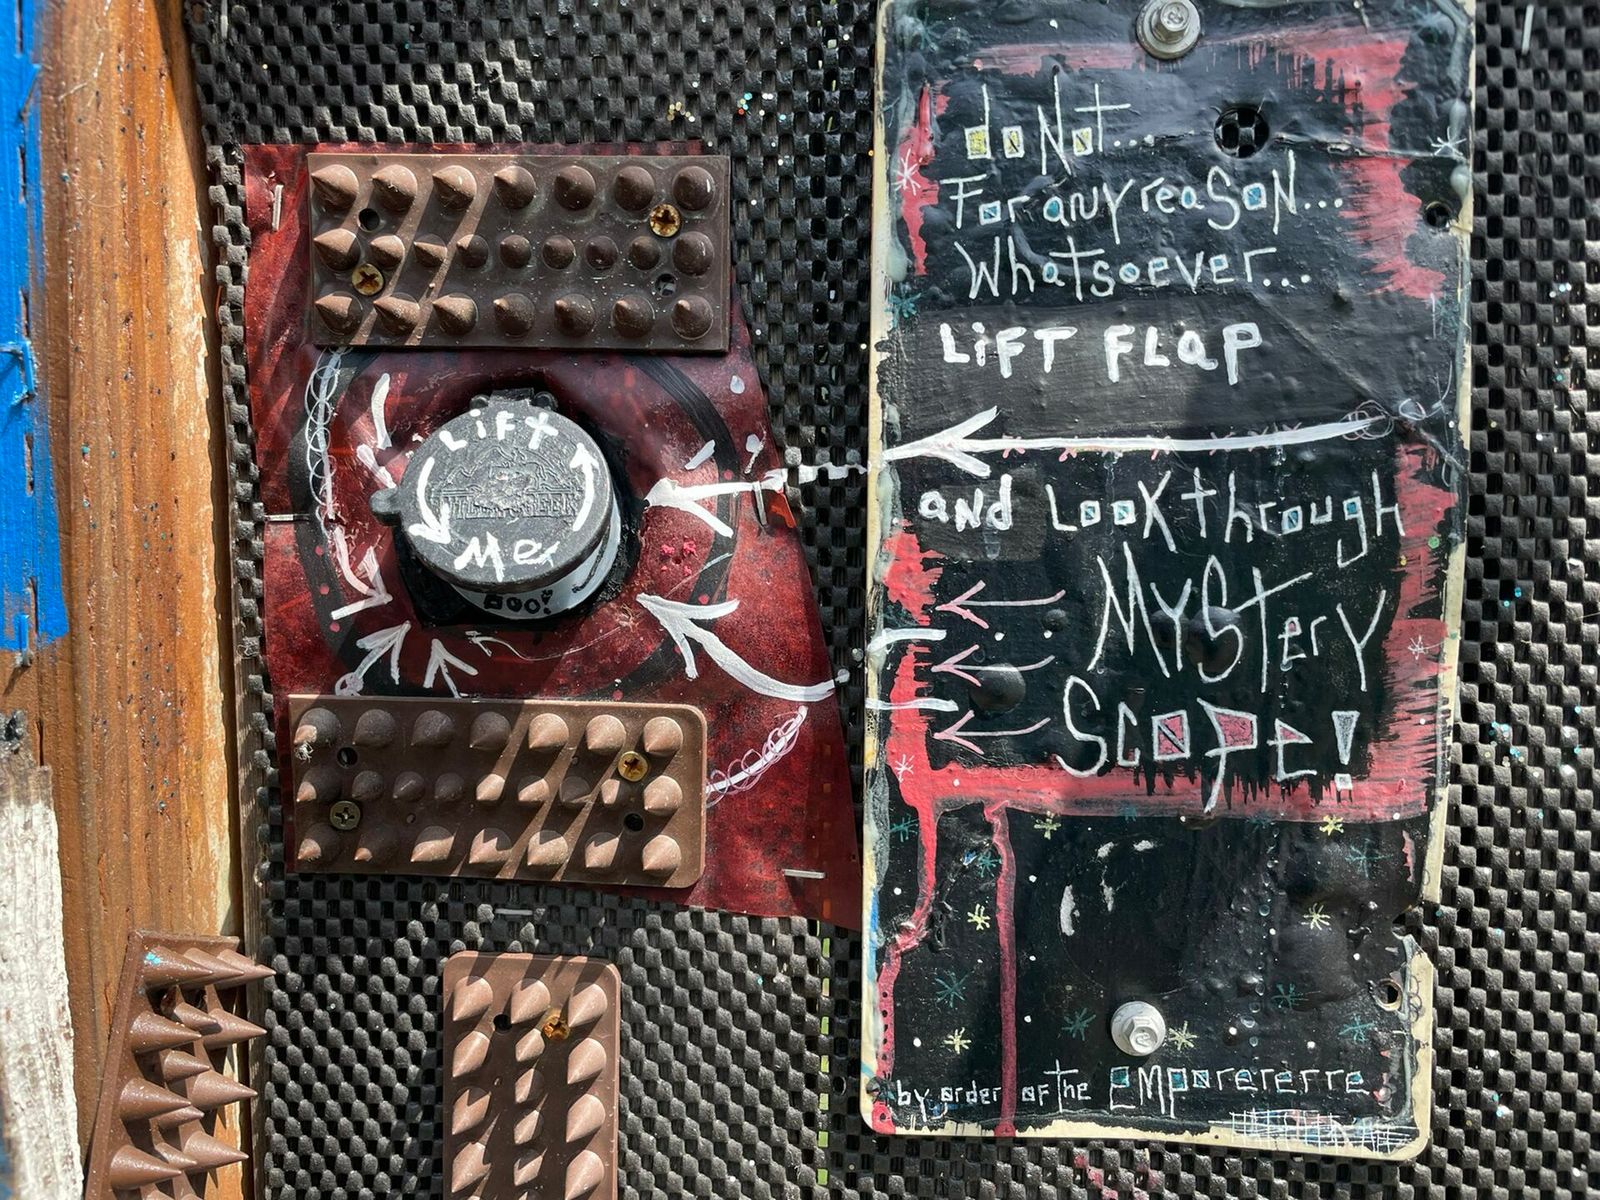 LiFt
Me
Boo!
doNot...
For any reaSoN...
Whatsoever...
LiFT FLaP
aNd LooK through
MyStery
Scope!
by order of the EMporererre